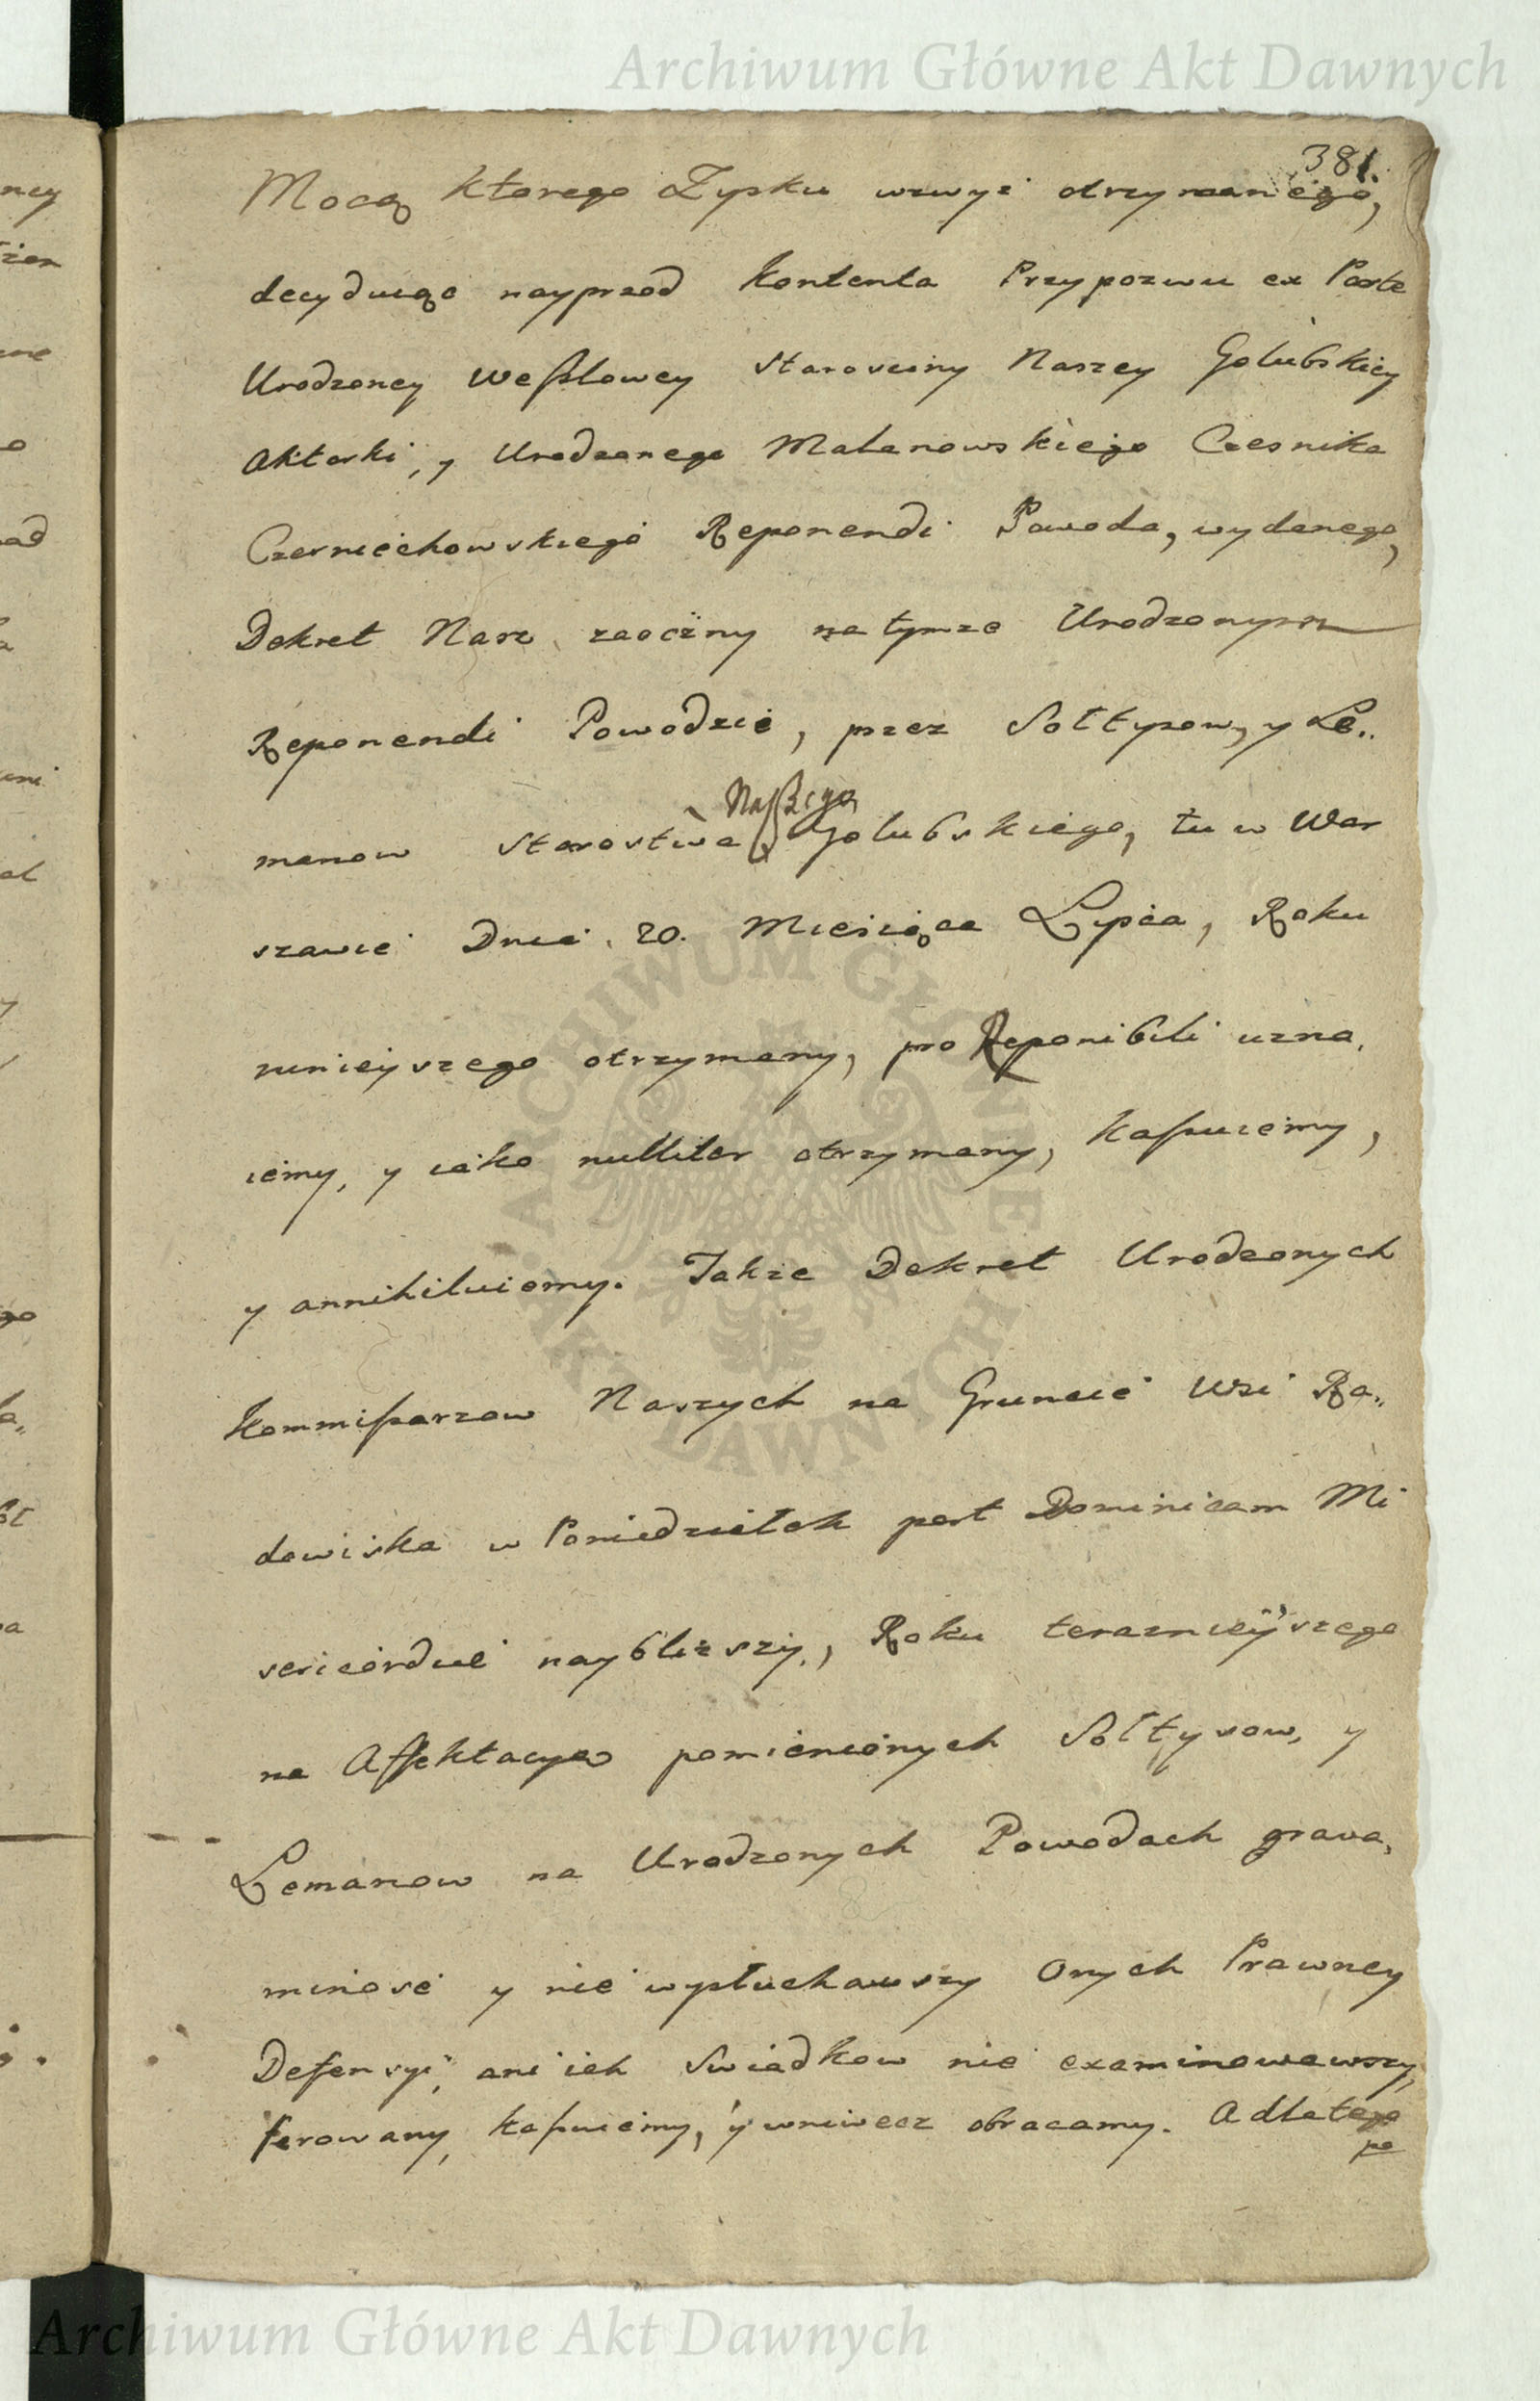 Archiwum Główne Akt Dawnych
381.
Mocą ktorego Zysku wzwyż otrzymanego,
decyduiąc nayprzod Kontenta Przypozwu ex Parte
Urodzoney Weſslowey Starosciny Naszey Golubskiey
Aktorki, y Urodzonego Malanowskiego Czesnika
Czerniechowskiego Reponendi Powoda, wydanego,
Dekret Nasz zaoczny na tymze Urodzonym
Reponendi Powodzie, przez Sołtysow, y Le„
manow Starostwa Naſzego Golubskiego, tu w War
szawie Dnia 20. Miesiąca Lipca, Roku
ninieyszego otrzymany, pro Reponibili uzna„
iemy, y iako nulliter otrzymany, Kaſsuiemy,
y annihiluiemy. Takze Dekret Urodzonych
Kommiſsarzow Naszych na Gruncie Wsi Ra„
dowiska w Poniedziałek post Dominicam Mi
sericordiae naybliższy, Roku teraznieyszego
na Affektacyą pomienionych Sołtysow, y
Lemanow na Urodzonych Powodach grava„
minose y nie wysłuchawszy Onych Prawney
Defensyi, ani ich Swiadkow nie examinowawszy,
ferowany, kaſsuiemy, y wniwecz obracamy. A dlatego
po
ARCHIWUM GŁÓWNE AKT DAWNYCH
Archiwum Główne Akt Dawnych